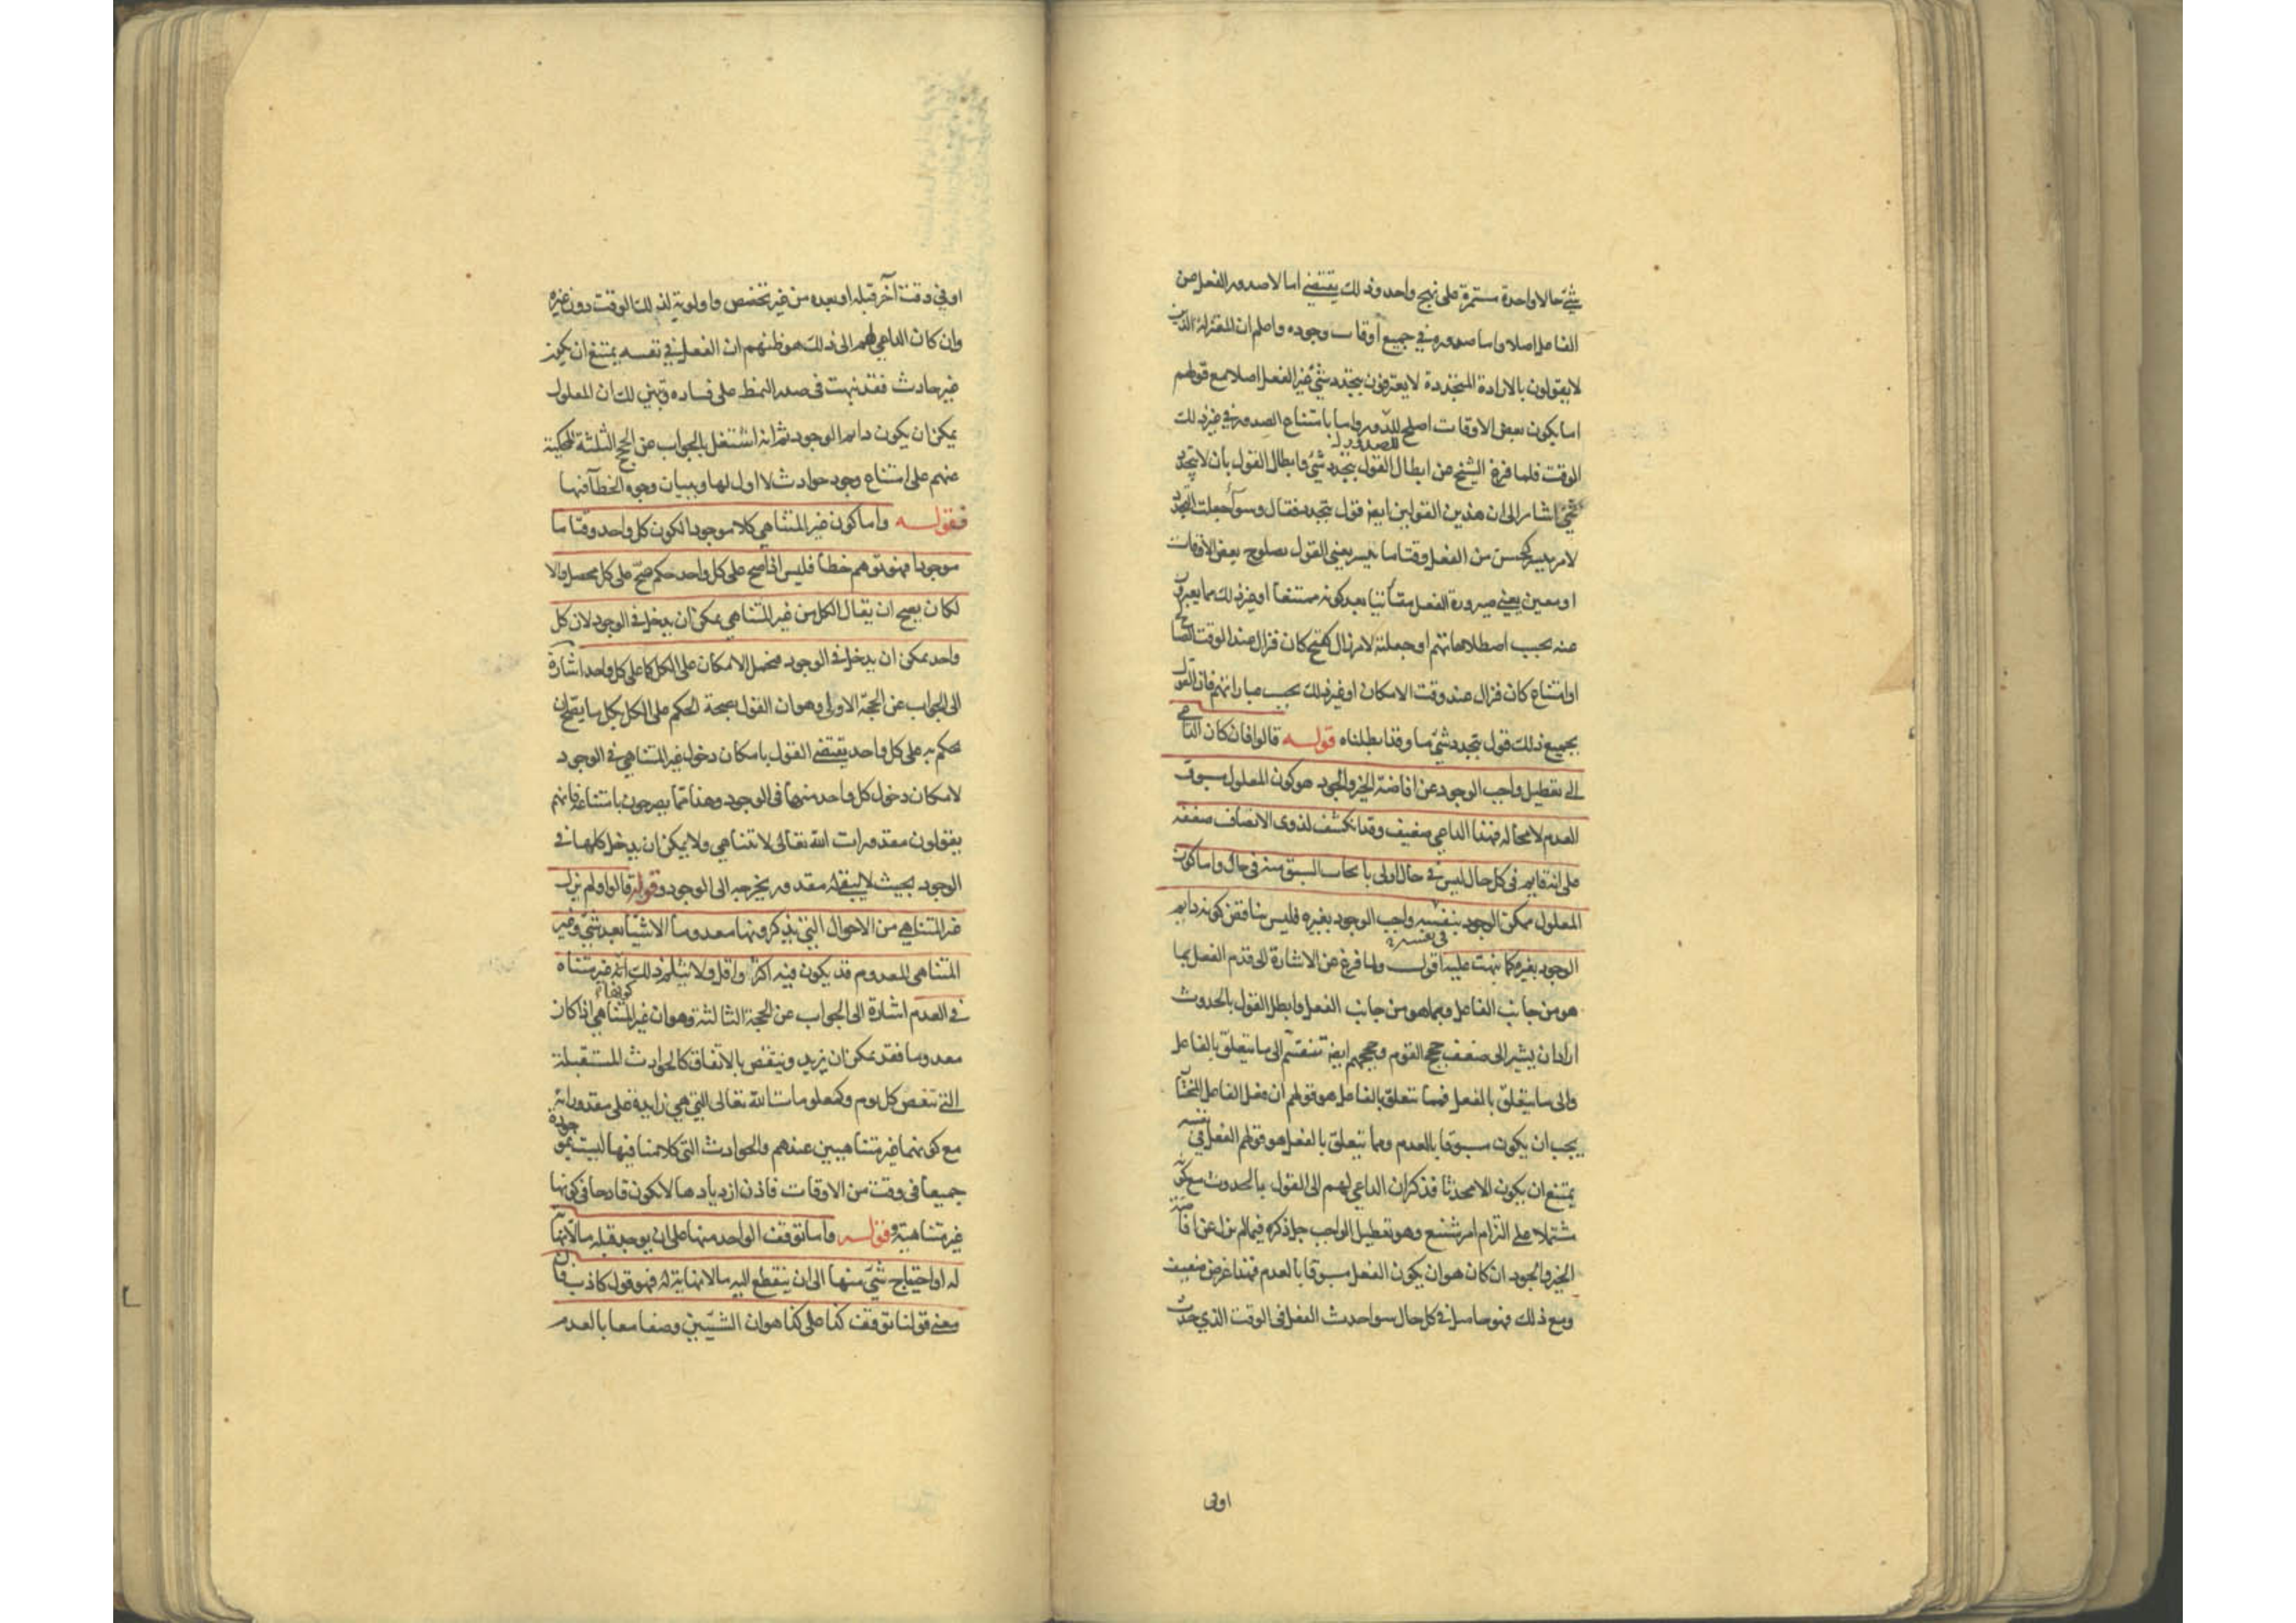 شئ حالا واحدة مستمرة على نهج واحد وذلك يقتضي اما لا صدور الفعل من
الفاعل اصلا واما صدوره في جميع أوقات وجوده واعلم ان المعتزلة الذين
لا يقولون بالارادة المتجددة لا يعترفون بتجدد شئ غير الفعل اصلا مع قولهم
اما بكون بعض الاوقات اصلح للصدور واما بامتناع الصدور في غير ذلك
الوقت فلما فرغ الشيخ عن ابطال القول بتجدد شئ وابطال القول بأن لا يتجدد
شئ اشار الى ان هذين القولين ايضا قول بتجدد فقال وسوآء جعلت التجدد
لامر تيسر كحسن من الفعل وقتا ما تيسر يعنى القول بصلوح بعض الاوقات
او معين يعني صيرورة الفعل متأتيا بعد كونه ممتنعا او غير ذلك مما يعبرون
عنه بحسب اصطلاحاتهم او جعلته لامر زال كقبح كان فزال عند الوقت الصالح
او امتناع كان فزال عند وقت الامكان او غير ذلك بحسب عباراتهم فان القول
بجميع ذلك قول بتجدد شئ ما وقد ابطلناه قوله قالوا فان كان الداعي
الى تعطيل واجب الوجود عن افاضة الخير والجود هو كون المعلول مسبوق
العدم لا محالة فهذا الداعي ضعيف وقد انكشف لذوى الانصاف ضعفه
على انه قايم فى كل حال ليس في حال اولى بايجاب السبق منه فى حال واما كون
المعلول ممكن الوجود بنفسه واجب الوجود بغيره فليس يناقض كونه دايم
فى نفسه
الوجود بغيره كما نبهت عليه اقول ولما فرغ عن الاشارة الى قدم الفعل بما
هو من جانب الفاعل وبما هو من جانب الفعل وابطل القول بالحدوث
اراد ان يشير الى ضعف حجج القوم وحججهم ايضا تنقسم الى ما يتعلق بالفاعل
والى ما يتعلق بالفعل فمما تتعلق بالفاعل هو قولهم ان فعل الفاعل المختار
يجب ان يكون مسبوقا بالعدم ومما يتعلق بالفعل هو قولهم الفعل في نفسه
يمتنع ان يكون الا محدثا فذكر ان الداعي لهم الى القول بالحدوث مع كونه
مشتملا على التزام امر شنيع وهو تعطيل الواجب جل ذكره فيما لم يزل عن افاضة
الخير والجود ان كان هو ان يكون الفعل مسبوقا بالعدم فهذا غرض ضعيف
ومع ذلك فهو حاصل في كل حال سوا حدث الفعل فى الوقت الذي حدث
اوفى
او في وقت آخر قبله او بعده من غير تخصص واولوية لذلك الوقت دون غيره
وان كان الداعي لهم الى ذلك هو ظنهم ان الفعل في نفسه يمتنع ان يكون
غير حادث فقد نبهت فى صدر النمط على فساده وتبين لك ان المعلول
يمكن ان يكون دايم الوجود ثم انه اشتغل بالجواب عن الحجج الثلثة المحكية
عنهم على امتناع وجود حوادث لا اول لها وببيان وجوه الخطأ فيها
فقوله واما كون غير المتناهي كلا موجودا لكون كل واحد وقتا ما
موجودا فهو توهم خطأ فليس اذا صح على كل واحد حكم صحّ على كل محصل والا
لكان يصح ان يقال الكل من غير المتناهي يمكن ان يدخل في الوجود لان كل
واحد يمكن ان يدخل في الوجود فيحمل الامكان على الكل كما على كل واحد اشارة
الى الجواب عن الحجة الاولى وهو ان القول بصحة الحكم على الكل بكل ما يصح ان
يحكم به على كل واحد يقتضي القول بامكان دخول غير المتناهي في الوجود
لامكان دخول كل واحد منها فى الوجود وهذا مما يصرحون بامتناعه فانهم
يقولون مقدورات الله تعالى لا تتناهي ولا يمكن ان يدخل كلها في
الوجود بحيث لا يبقى له مقدور يخرجه الى الوجود وقوله قالوا ولم يزل
غير المتناهي من الاحوال التي يذكرونها معدوما الا شيئا بعد شئ وغير
المتناهي المعدوم قد يكون فيه اكثر واقل ولا يثلم ذلك انه غير متناه
في العدم اشارة الى الجواب عن الحجة الثالثة وهو ان غير المتناهي اذا كان
معدوما فقد يمكن ان يزيد وينقص بالاتفاق كالحوادث المستقبلة
التي تنقص كل يوم وكمعلومات الله تعالى التي هي زايدة على مقدوراته
مع كونهما غير متناهيين عندهم والحوادث التى كلامنا فيها ليست بموجودة
جميعا فى وقت من الاوقات فاذن ازديادها لا يكون قادحا فى كونها
غير متناهية وقوله واما توقف الواحد منها على ان يوجد قبله ما لا نهاية
له او احتياج شئ منها الى ان ينقطع اليه ما لا نهاية له فهو قول كاذب فان
معنى قولنا توقف كذا على كذا هو ان الشيئين وصفا معا بالعدم